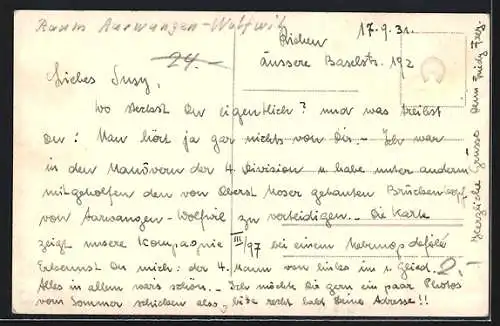 Raum Aarwangen-Wolfwil
Riehen 17.9.31.
äussere Baselstr. 192
24.-
Liebes Susy,
wo steckst Du eigentlich? und was treibst
Du? Man hört ja gar nichts von Dir. - Ich war
in den Manövern der 4. Division u. habe unter anderm
mitgeholfen den von Oberst Moser gebauten Brückenkopf
von Aarwangen-Wolfwil zu verteidigen. - Die Karte
zeigt unsere Kompagnie III/97 bei einem Defilé
Erkennst Du mich: der 4. Mann von links im 1. Glied.
Alles in allem wars schön. - Ich möchte Dir gern ein paar Photos
vom Sommer schicken also, bitte recht bald Deine Adresse!!
2.-
Herzliche Grüsse Dein Fredy